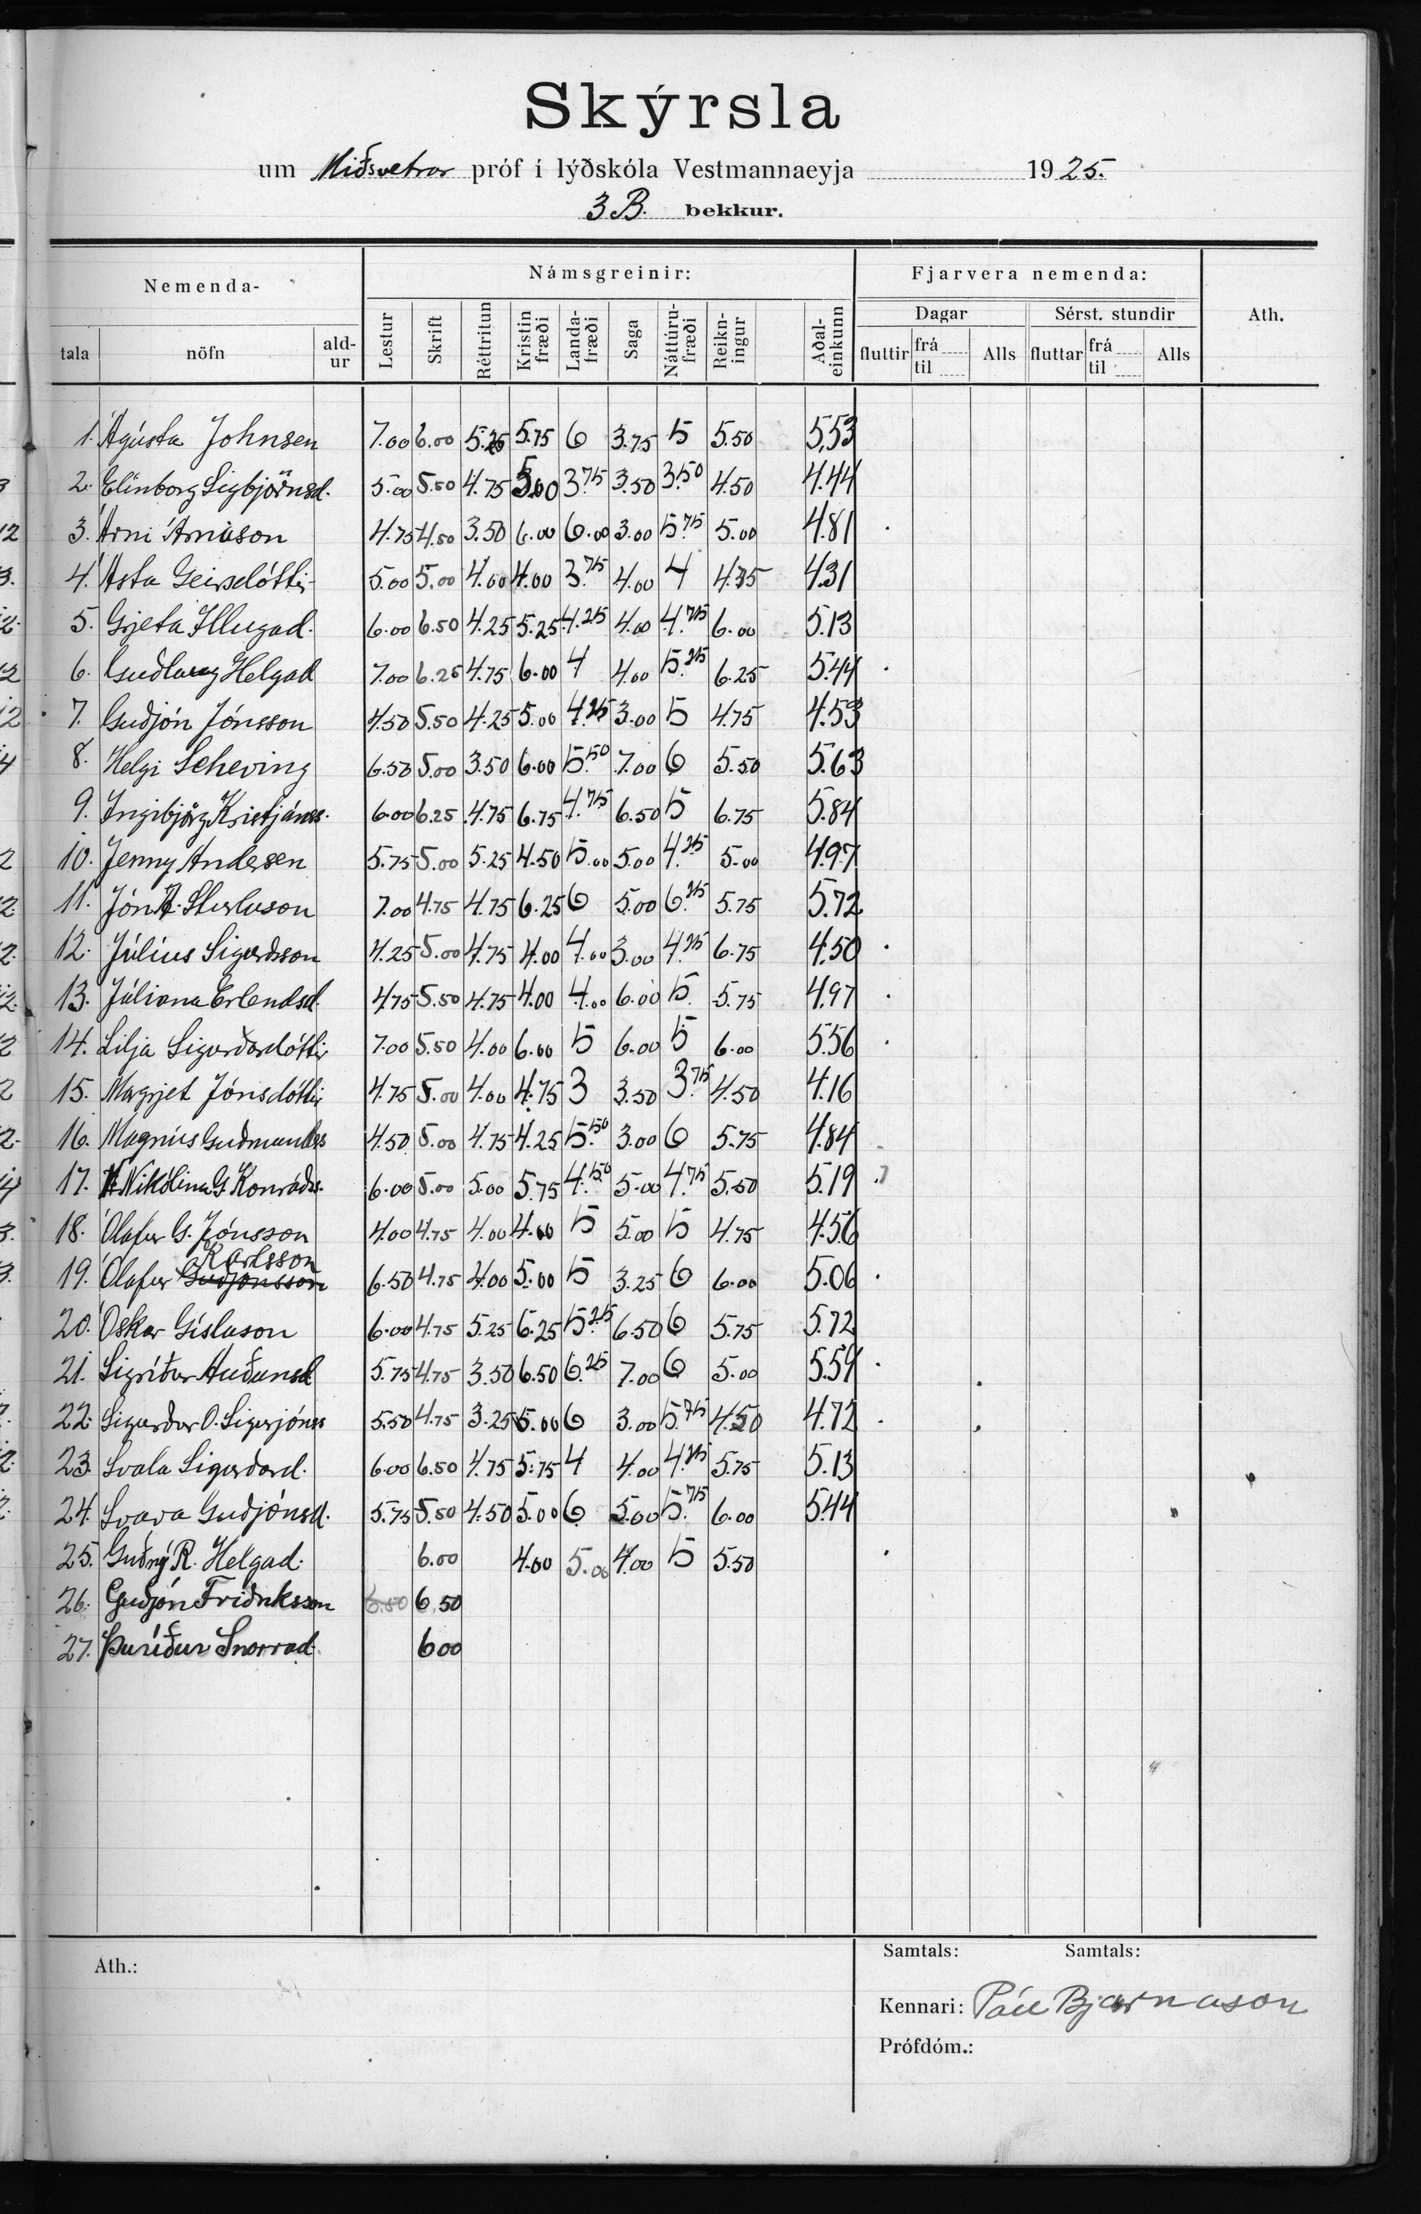 Skýrsla
um Miðsvetrar próf í lýðskóla Vestmannaeyja 1925.
3 B. bekkur.
Nemenda- Námsgreinir: Fjarvera nemenda: Ath.
Dagar Sérst. stundir
tala nöfn ald-ur Lestur Skrift Réttritun Kristin fræði Landa-fræði Saga Náttúru-fræði Reikn-ingur Aðal-einkunn fluttir frá til Alls fluttar frá til Alls
1. Ágústa Johnsen 7.00 6.00 5.25 5.75 6 3.75 5 5.50 5,53
2. Elínborg Sigbjörnsd. 5.00 5.50 4.75 5.00 3.75 3.50 3.50 4.50 4.44
3. Árni Árnason 4.75 4.50 3.50 6.00 6.00 3.00 5.75 5.00 4.81
4. Ásta Geirsdóttir 5.00 5.00 4.00 4.00 3.75 4.00 4 4.75 4.31
5. Grjeta Illugad. 6.00 6.50 4.25 5.25 4.25 4.00 4.75 6.00 5.13
6. Guðlaug Helgad 7.00 6.25 4.75 6.00 4 4.00 5.25 6.25 5.44
7. Guðjón Jónsson 4.50 5.50 4.25 5.00 4.25 3.00 5 4.75 4.53
8. Helgi Scheving 6.50 5.00 3.50 6.00 5.50 7.00 6 5.50 5.63
9. Ingibjörg Kristjánss. 6.00 6.25 4.75 6.75 4.75 6.50 5 6.75 5.84
10. Jenny Andersen 5.75 5.00 5.25 4.50 5.00 5.00 4.25 5.00 4.97
11. Jón Á. Sturluson 7.00 4.75 4.75 6.25 6 5.00 6.25 5.75 5.72
12. Júlíus Sigurdsson 4.25 5.00 4.75 4.00 4.00 3.00 4.25 6.75 4.50
13. Júliana Erlendsd. 4.75 5.50 4.75 4.00 4.00 6.00 5. 5.75 4.97
14. Lilja Sigurðardóttir 7.00 5.50 4.00 6.00 5 6.00 5 6.00 5.56
15. Margrjet Jónsdóttir 4.75 5.00 4.00 4.75 3 3.50 3.75 4.50 4.16
16. Magnús Guðmundss 4.50 5.00 4.75 4.25 5.50 3.00 6 5.75 4.84
17. Nikólína G. Konráðs. 6.00 5.00 5.00 5.75 4.50 5.00 4.75 5.50 5.19
18. Ólafur G. Jónsson 4.00 4.75 4.00 4.00 5 5.00 5 4.75 4.56
Karlsson
19. Ólafur Guðjónsson 6.50 4.75 4.00 5.00 5 3.25 6 6.00 5.06
20. Óskar Gíslason 6.00 4.75 5.25 6.25 5.25 6.50 6 5.75 5.72
21. Sigríður Auðunsd 5.75 4.75 3.50 6.50 6.25 7.00 6 5.00 5.59
22. Sigurður O. Sigurjónss 5.50 4.75 3.25 5.00 6 3.00 5.75 4.50 4.72
23. Svala Sigurðard. 6.00 6.50 4.75 5.75 4 4.00 4.25 5.75 5.13
24. Svava Guðjónsd. 5.75 5.50 4.50 5.00 6 5.00 5.75 6.00 5.44
25. Guðný R. Helgad. 6.00 4.00 5.00 4.00 5 5.50
26. Guðjón Friðriksson 6.50 6.50
27. Þuríður Snorrad. 6 00
Ath.: Samtals: Samtals:
Kennari: Páll Bjarnason
Prófdóm.: